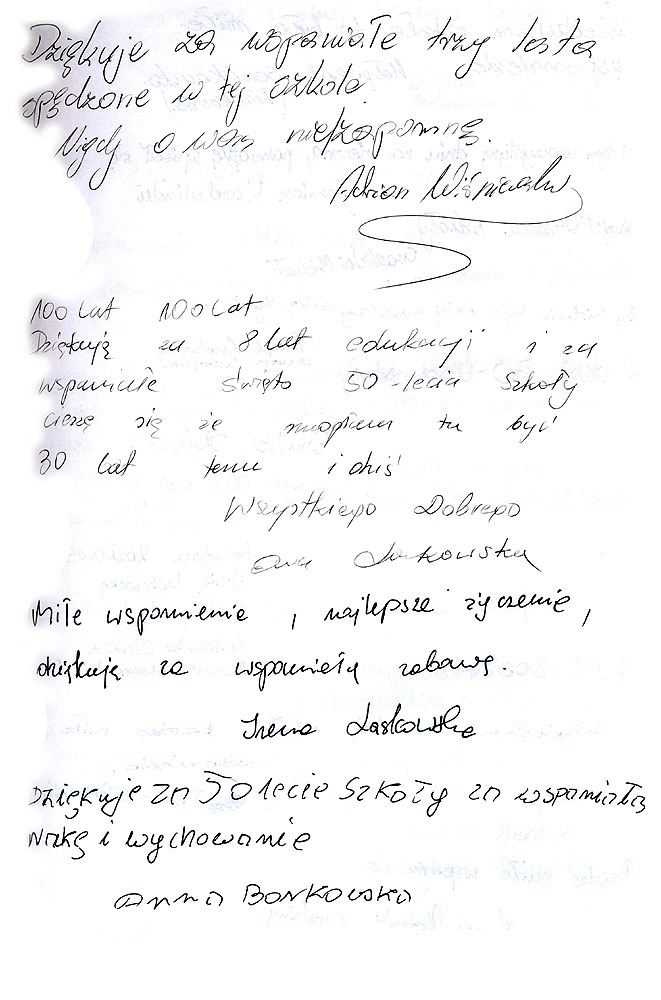 Dziękuje za wspaniałe trzy lata
spędzone w tej szkole.
Nigdy o was niezapomnę.
Adrian Wiśniewski
100 lat 100 lat
Dziękuję za 8 lat edukacji i za
wspaniałe święto 50-lecia Szkoły
cieszę się że mogłam tu być
30 lat temu i dziś
Wszystkiego Dobrego
Ewa Laskowska
Miłe wspomnienie, najlepsze życzenie,
dziękuję za wspaniełą zabawę.
Irena Laskowska
Dziękuje za 50 lecie Szkoły za wspaniałą
naukę i wychowanie
Anna Borkowska